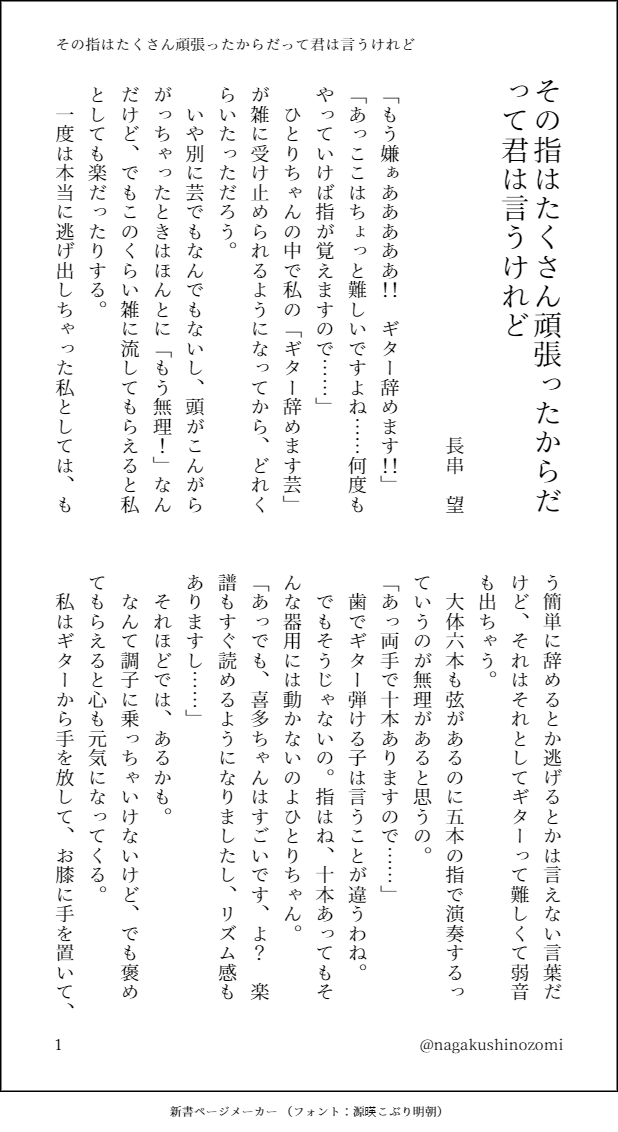 その指はたくさん頑張ったからだって君は言うけれど
その指はたくさん頑張ったからだ
って君は言うけれど
長串　望
「もう嫌ぁああああぁ!!　ギター辞めます!!」
「あっここはちょっと難しいですよね……何度も
やっていけば指が覚えますので……」
　ひとりちゃんの中で私の「ギター辞めます芸」
が雑に受け止められるようになってから、どれく
らいたっただろう。
　いや別に芸でもなんでもないし、頭がこんがら
がっちゃったときはほんとに「もう無理！」なん
だけど、でもこのくらい雑に流してもらえると私
としても楽だったりする。
　一度は本当に逃げ出しちゃった私としては、も
う簡単に辞めるとか逃げるとかは言えない言葉だ
けど、それはそれとしてギターって難しくて弱音
も出ちゃう。
　大体六本も弦があるのに五本の指で演奏するっ
ていうのが無理があると思うの。
「あっ両手で十本ありますので……」
　歯でギター弾ける子は言うことが違うわね。
　でもそうじゃないの。指はね、十本あってもそ
んな器用には動かないのよひとりちゃん。
「あっでも、喜多ちゃんはすごいです、よ？　楽
譜もすぐ読めるようになりましたし、リズム感も
ありますし……」
　それほどでは、あるかも。
　なんて調子に乗っちゃいけないけど、でも褒め
てもらえると心も元気になってくる。
　私はギターから手を放して、お膝に手を置いて、
1
@nagakushinozomi
新書ページメーカー（フォント：源暎こぶり明朝）